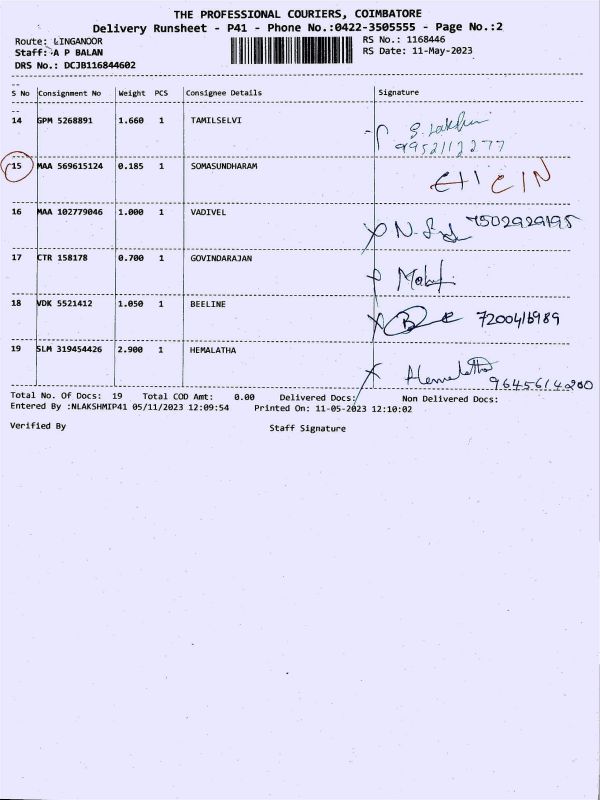 THE PROFESSIONAL COURIERS, COIMBATORE
Delivery Runsheet - P41 - Phone No.:0422-3505555 - Page No.:2
Route: LINGANOOR RS No.: 1168446
Staff: A P BALAN RS Date: 11-May-2023
DRS No.: DCJB116844602
S No Consignment No Weight PCS Consignee Details Signature
14 GPM 5268891 1.660 1 TAMILSELVI
9952112277
15 MAA 569615124 0.185 1 SOMASUNDHARAM
16 MAA 102779046 1.000 1 VADIVEL 7502929195
17 CTR 158178 0.700 1 GOVINDARAJAN
18 VDK 5521412 1.050 1 BEELINE 7200416989
19 SLM 319454426 2.900 1 HEMALATHA Hemalatha
Total No. Of Docs: 19 Total COD Amt: 0.00 Delivered Docs: Non Delivered Docs:
Entered By :NLAKSHMIP41 05/11/2023 12:09:54 Printed On: 11-05-2023 12:10:02
Verified By Staff Signature